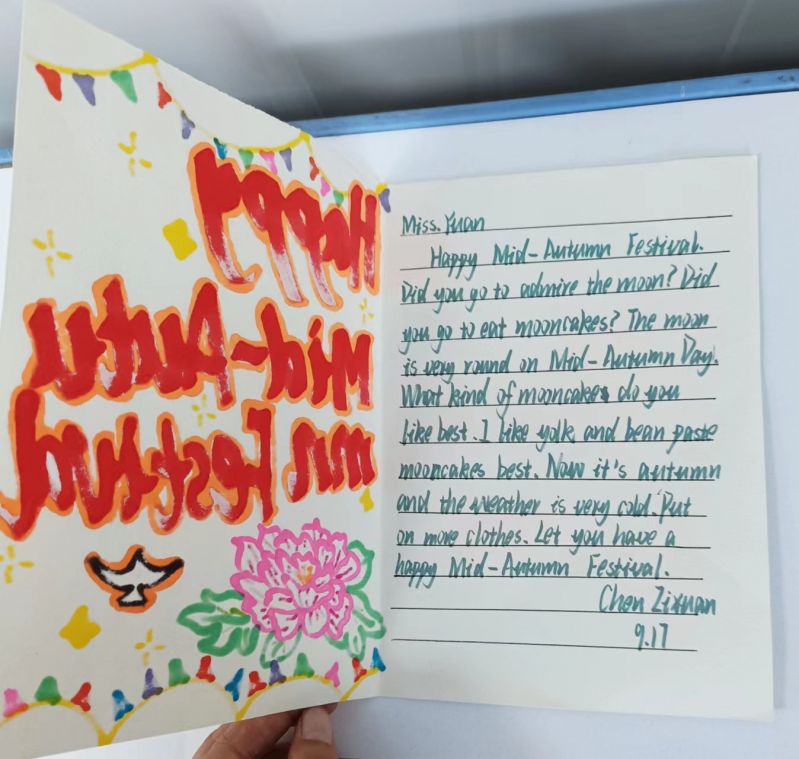 Happy
Mid-Autu
mn Festival
Miss. Yuan
Happy Mid-Autumn Festival.
Did you go to admire the moon? Did
you go to eat mooncakes? The moon
is very round on Mid-Autumn Day.
What kind of mooncakes do you
like best. I like yolk and bean paste
mooncakes best. Now it's autumn
and the weather is very cold. Put
on more clothes. Let you have a
happy Mid-Autumn Festival.
Chen Zixuan
9.17